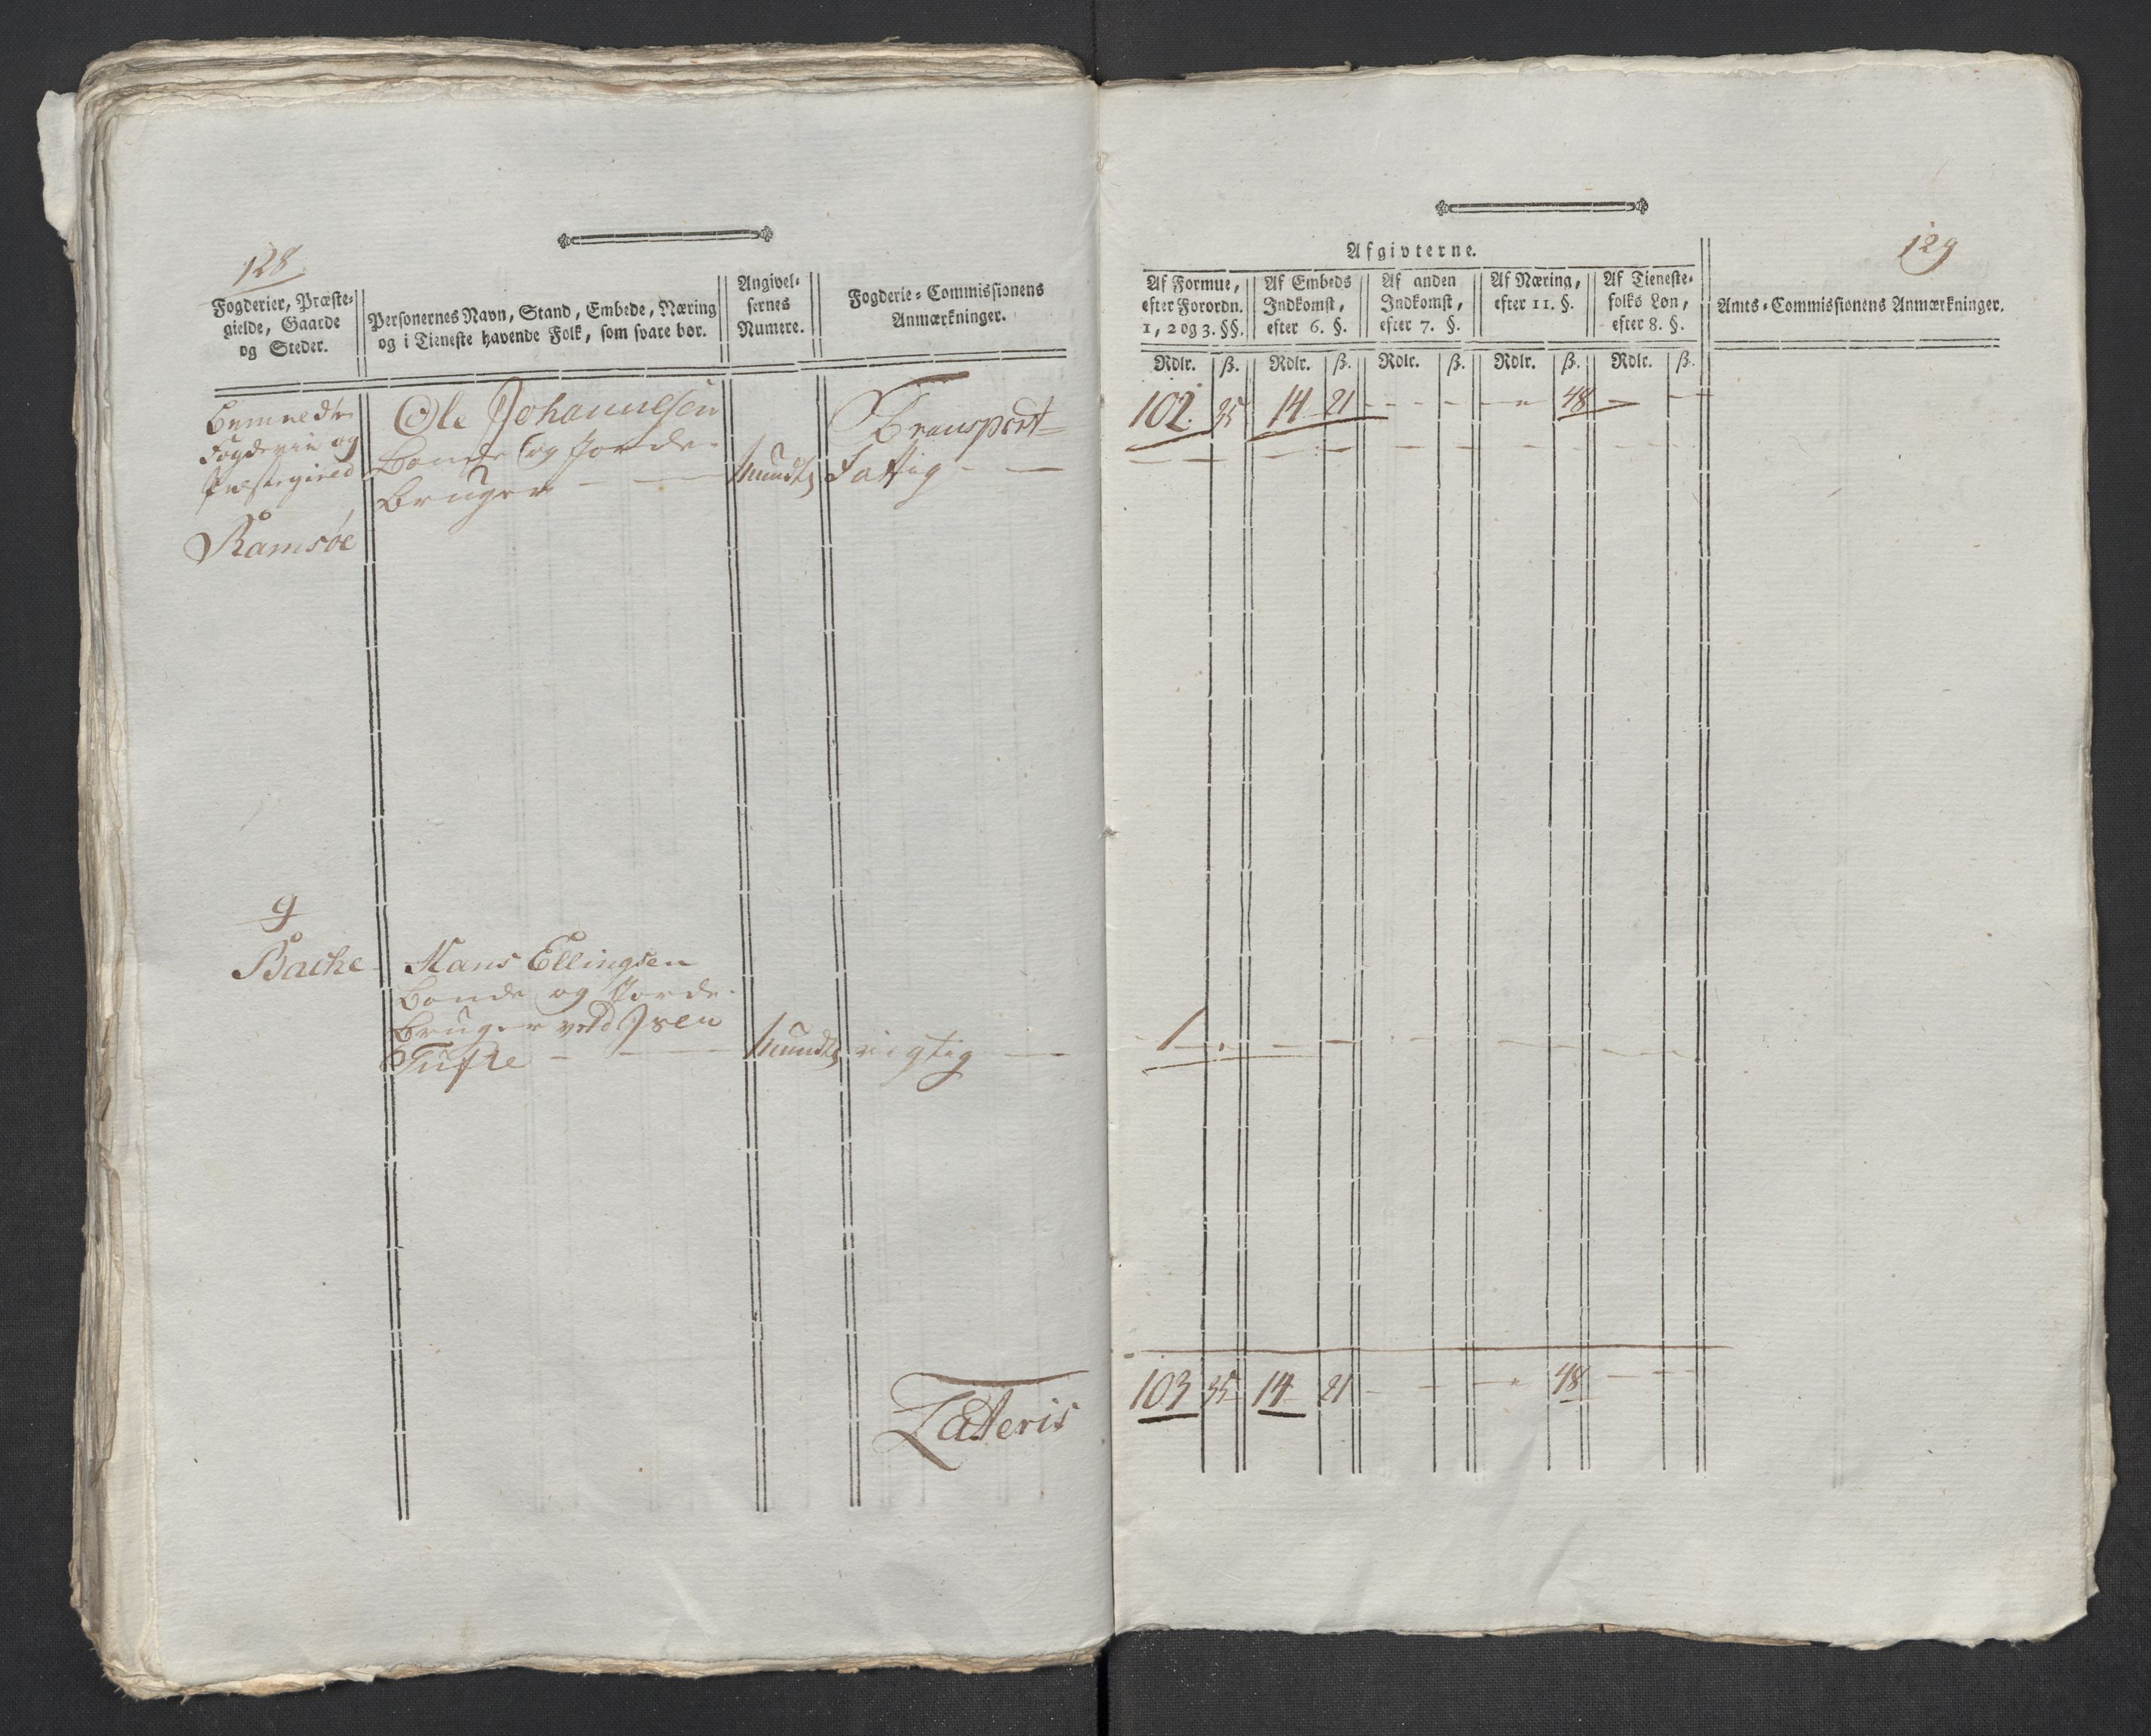 128
Fogderier, Præste-
gielde, Gaarde
og Steder.
Personernes Navn, Stand, Embede, Næring
og i Tieneste havende Folk, som svare bør.
Angivel-
sernes
Numere.
Fogderie-Commissionens
Anmærkninger.
Bemældte
Fogderie og
Præstegield
Ramsøe
Ole Johannesen
Bonde og Jorde-
Bruger - - mundtl
Transport
Fattig - -
9
Bache
Hans Ellingsen
Bonde og Jorde-
Bruger
Tufte - - - mundtl rigtig -
Lateris
129
Afgivterne.
Af Formue,
efter Forordn.
1, 2 og 3. §§.
Af Embeds
Indkomst,
efter 6. §.
Af anden
Indkomst,
efter 7. §.
Af Næring,
efter 11. §.
Af Tieneste-
folks Løn,
efter 8. §.
Amts-Commissionens Anmærkninger.
Rdlr. ß. Rdlr. ß. Rdlr. ß. Rdlr. ß. Rdlr. ß.
102. 35 14 21 - - - 48 - -
1 . - - - - - - - -
103 35 14 21 - - - 48 - -